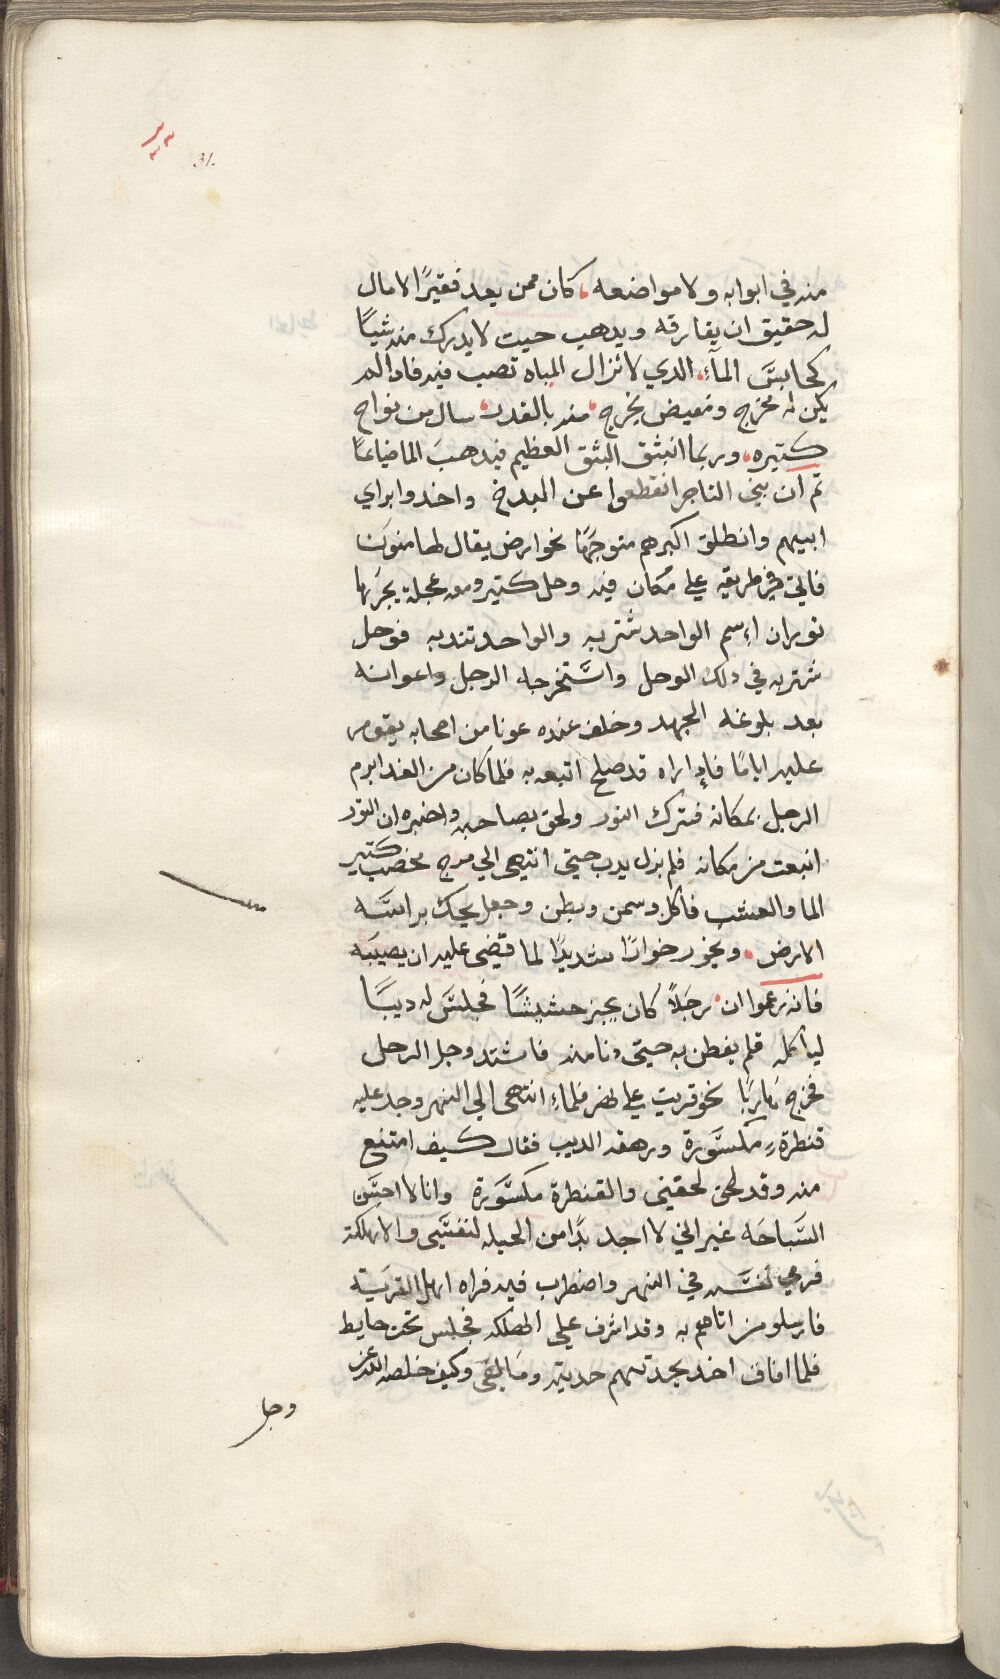 31.
منه في ابوابه ولا مواضعه كان ممن يعد فقيرًا لا مال
له حقيق ان يفارقه ويدهب حيت لا يدرك منه شيًا
كحابس المآء الدي لا تزال المياه تصب فيه فادا لم
يكن له مخرج ومغيض يخرج منه بالقدر سال من نواح
كتيره وربما انبثق البثق العظيم فيدهب الما ضياعًا
تم ان بني التاجر انقطعوا عن البدخ واخدوا براي
ابيهم وانطلق اكبرهم متوجهًا نحو ارض يقال لها منون
فاتي في طريقه علي مكان فيه وحل كتير ومعه عجلة يجرها
توران اسم الواحد شتربه والواحد تندبه فوحل
شتربه في دلك الوحل واستخرجه الرجل واعوانه
بعد بلوغه الجهد وخلف عنده عونا من اصحابه يقوم
عليه ايامًا فإدا راه قد صلح اتبعه به فلما كان من الغد ابرم
الرجل بمكانه فترك التور ولحق بصاحبه واخبره ان التور
انبعت من مكانه فلم يزل يدب حتي انتهي الي مرج مخصب كتير
الما والعشب فاكل وسمن وبطن وجعل يحك براسه
الارض ويخور خوارًا شديدًا لما قضي عليه ان يصيبه
فانه زعموا ان رجلاً كان يجز حشيشًا فجلس له ديبًا
لياكله فلم يفطن به حتي دنا منه فاشتد وجل الرجل
فخرج هاربًا نحو قريت علي نهر فلماء انتهي الي النهر وجد عليه
قنطرة مكسورة ورهقه الديب فقال كيف امتنع
منه وقد لحق لحقني والقنطرة مكسورة وانا لا احسن
السباحه غير اني لا اجد بدًا من الحيله لنفسي والا هلكة
فرمي نفسه في النهر واضطرب فيه فراه اهل القرية
فارسلو من اتاهم به وقد اشرف علي الهلكه فجلس تحت حايط
فلما افاق اخد يحدتهم حديته وما لقي وكيف خلصه الله عز
وجل